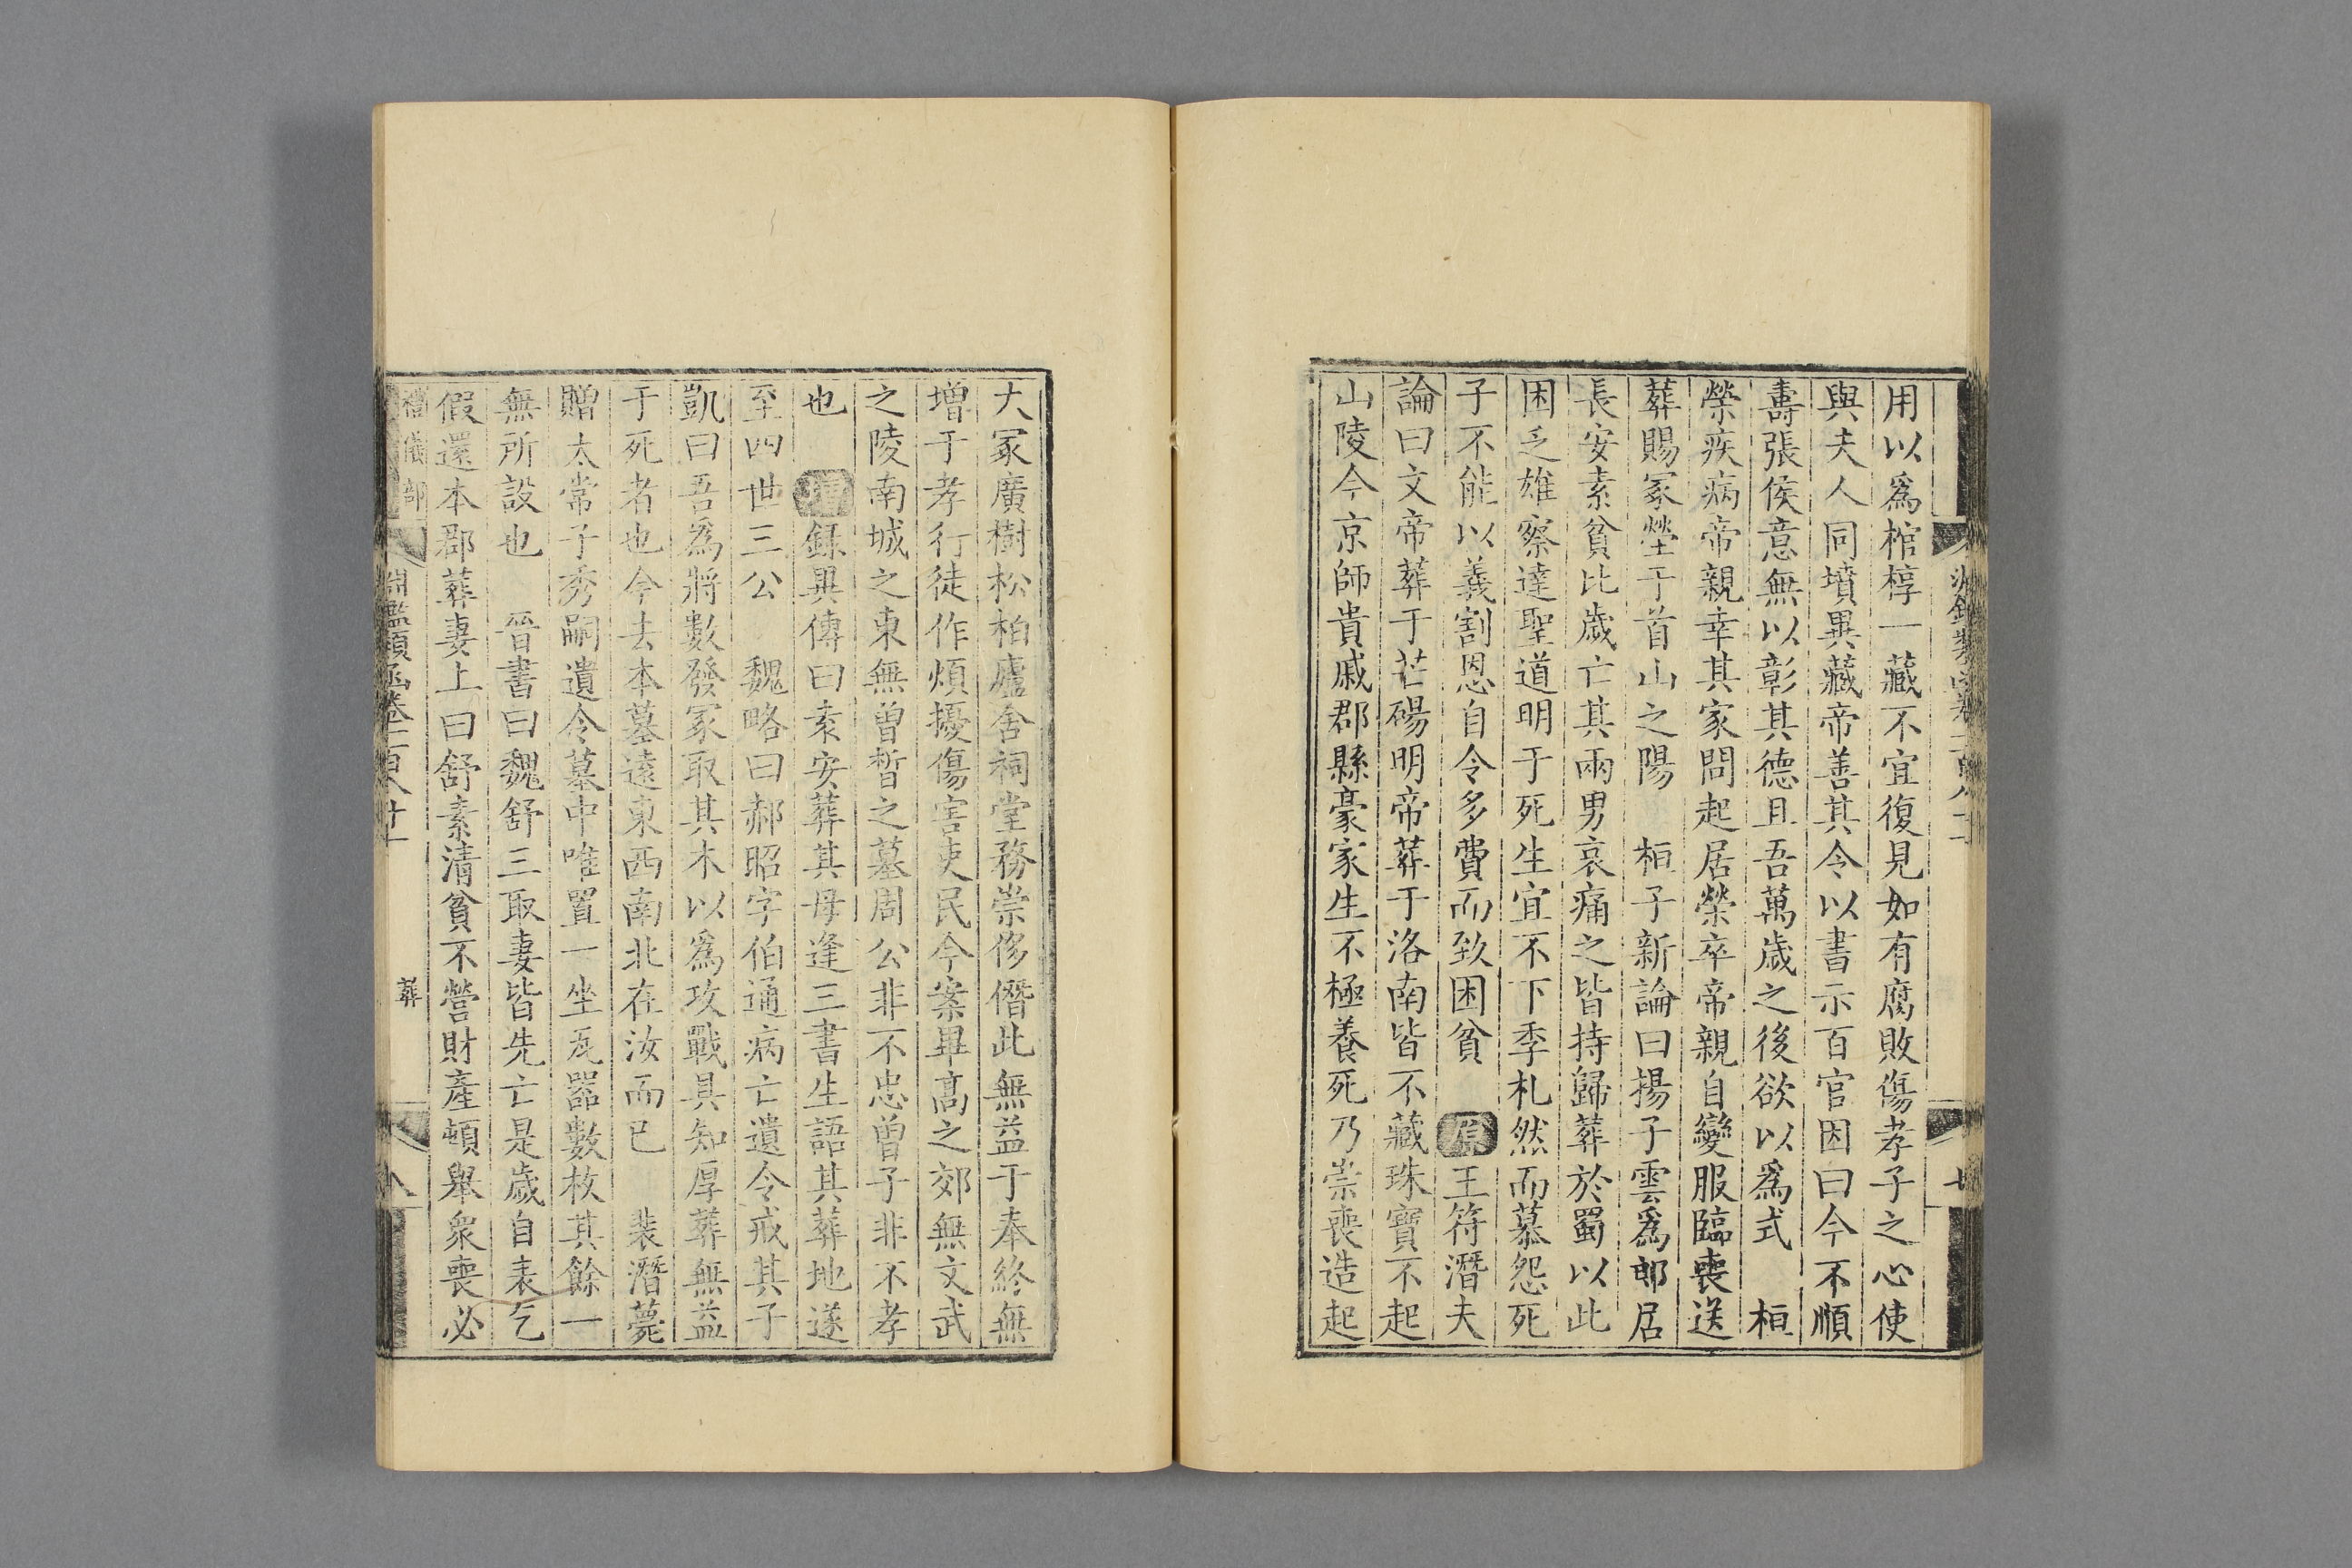 用以爲棺椁一藏不宜復見如有腐敗傷孝子之心使
與夫人同墳異藏帝善其令以書示百官因曰今不順
壽張侯意無以彰其德且吾萬歲之後欲以爲式　桓
榮疾病帝親幸其家問起居榮卒帝親自變服臨喪送
葬賜冢塋于首山之陽　桓子新論曰揚子雲爲郎居
長安素貧比歲亡其兩男哀痛之皆持歸葬於蜀以此
困乏雄察達聖道明于死生宜不下季札然而慕怨死
子不能以義割恩自令多費而致困貧　原王符潛夫
論曰文帝葬于芒碭明帝葬于洛南皆不藏珠寶不起
山陵今京師貴戚郡縣豪家生不極養死乃崇喪造起
大冢廣樹松柏廬舍祠堂務崇侈僭此無益于奉終無
增于孝行徒作煩擾傷害吏民今案畢髙之郊無文武
之陵南城之東無曾晳之墓周公非不忠曾子非不孝
也　增錄異傳曰袁安葬其母逢三書生語其葬地遂
至四世三公　魏略曰郝昭字伯通病亡遺令戒其子
凱曰吾爲將數發冢取其木以爲攻戰具知厚葬無益
于死者也今去本墓遠東西南北在汝而已　裴潛薨
贈太常子秀嗣遺令墓中唯置一坐瓦器數枚其餘一
無所設也　晉書曰魏舒三取妻皆先亡是歲自表乞
假還本郡葬妻上曰舒素清貧不營財產頓舉衆喪必
禮儀部
淵鑑類函卷一百八十一
葬
八